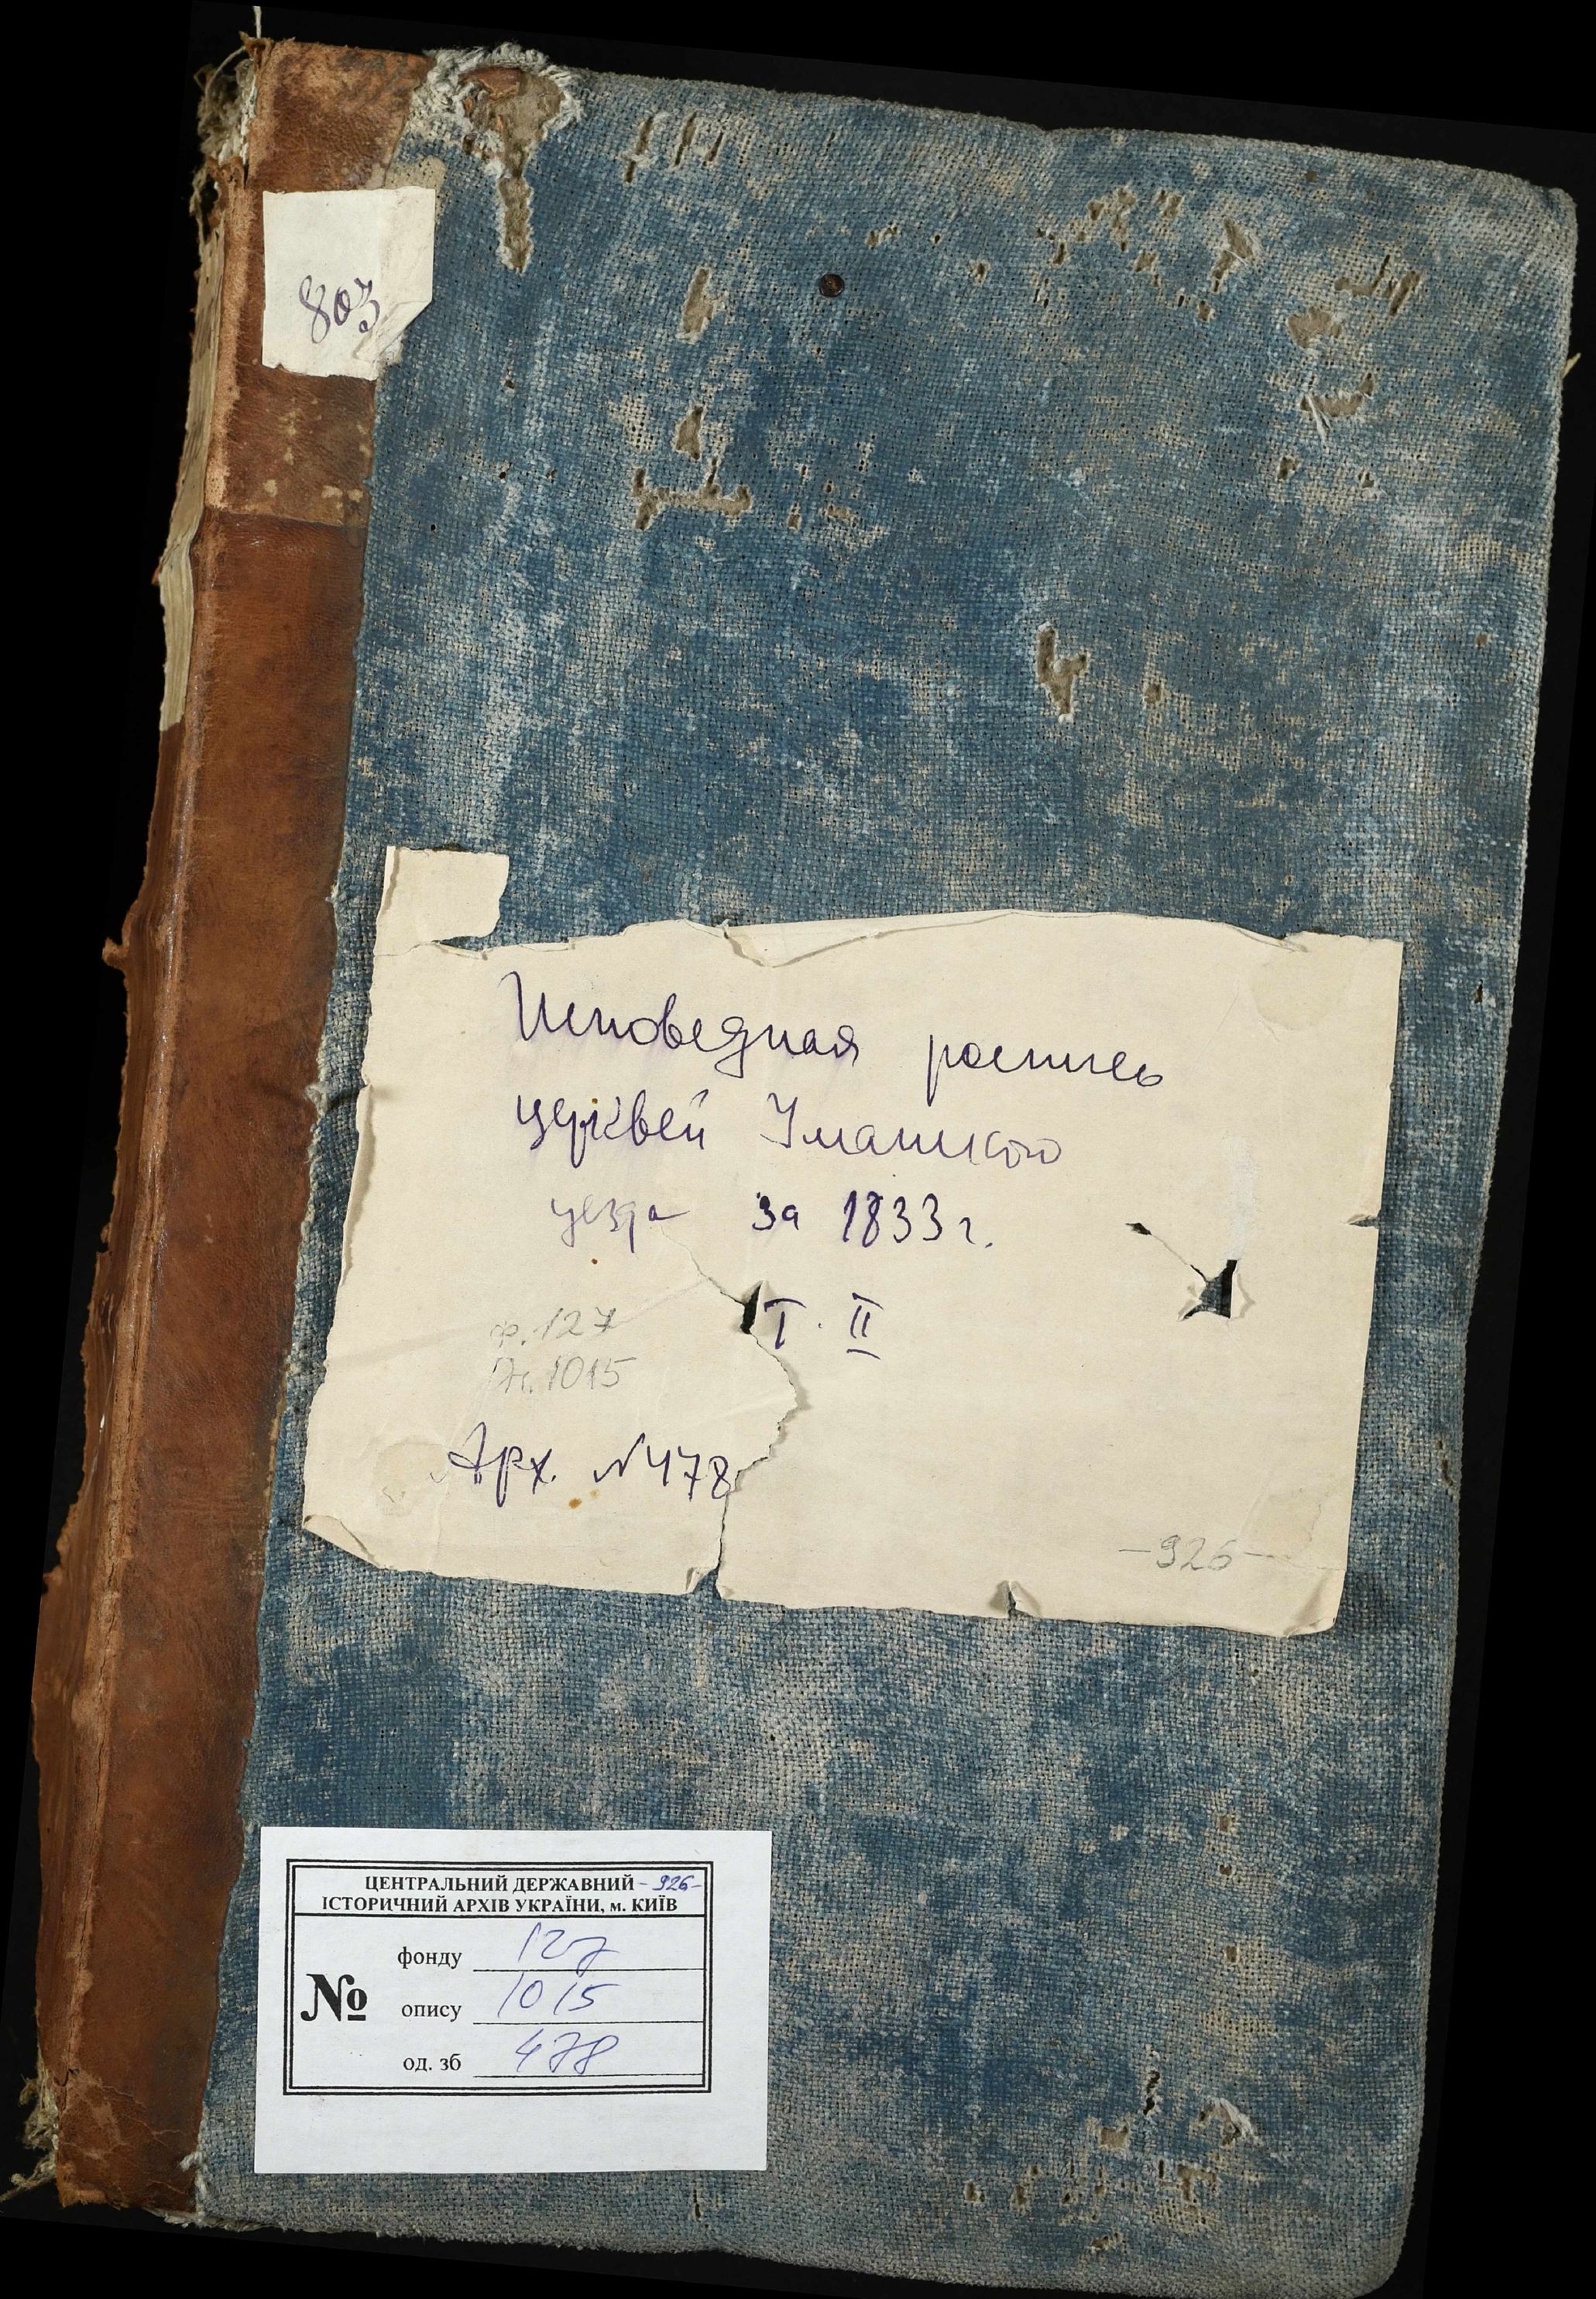 803
Исповедная роспись
церквей Уманского
уезда за 1833 г.
Т. II
ф. 127
Оп. 1015
Арх. №478
-926-
ЦЕНТРАЛЬНИЙ ДЕРЖАВНИЙ -926-
ІСТОРИЧНИЙ АРХІВ УКРАЇНИ, м. КИЇВ
№
фонду 127
опису 1015
од. зб 478